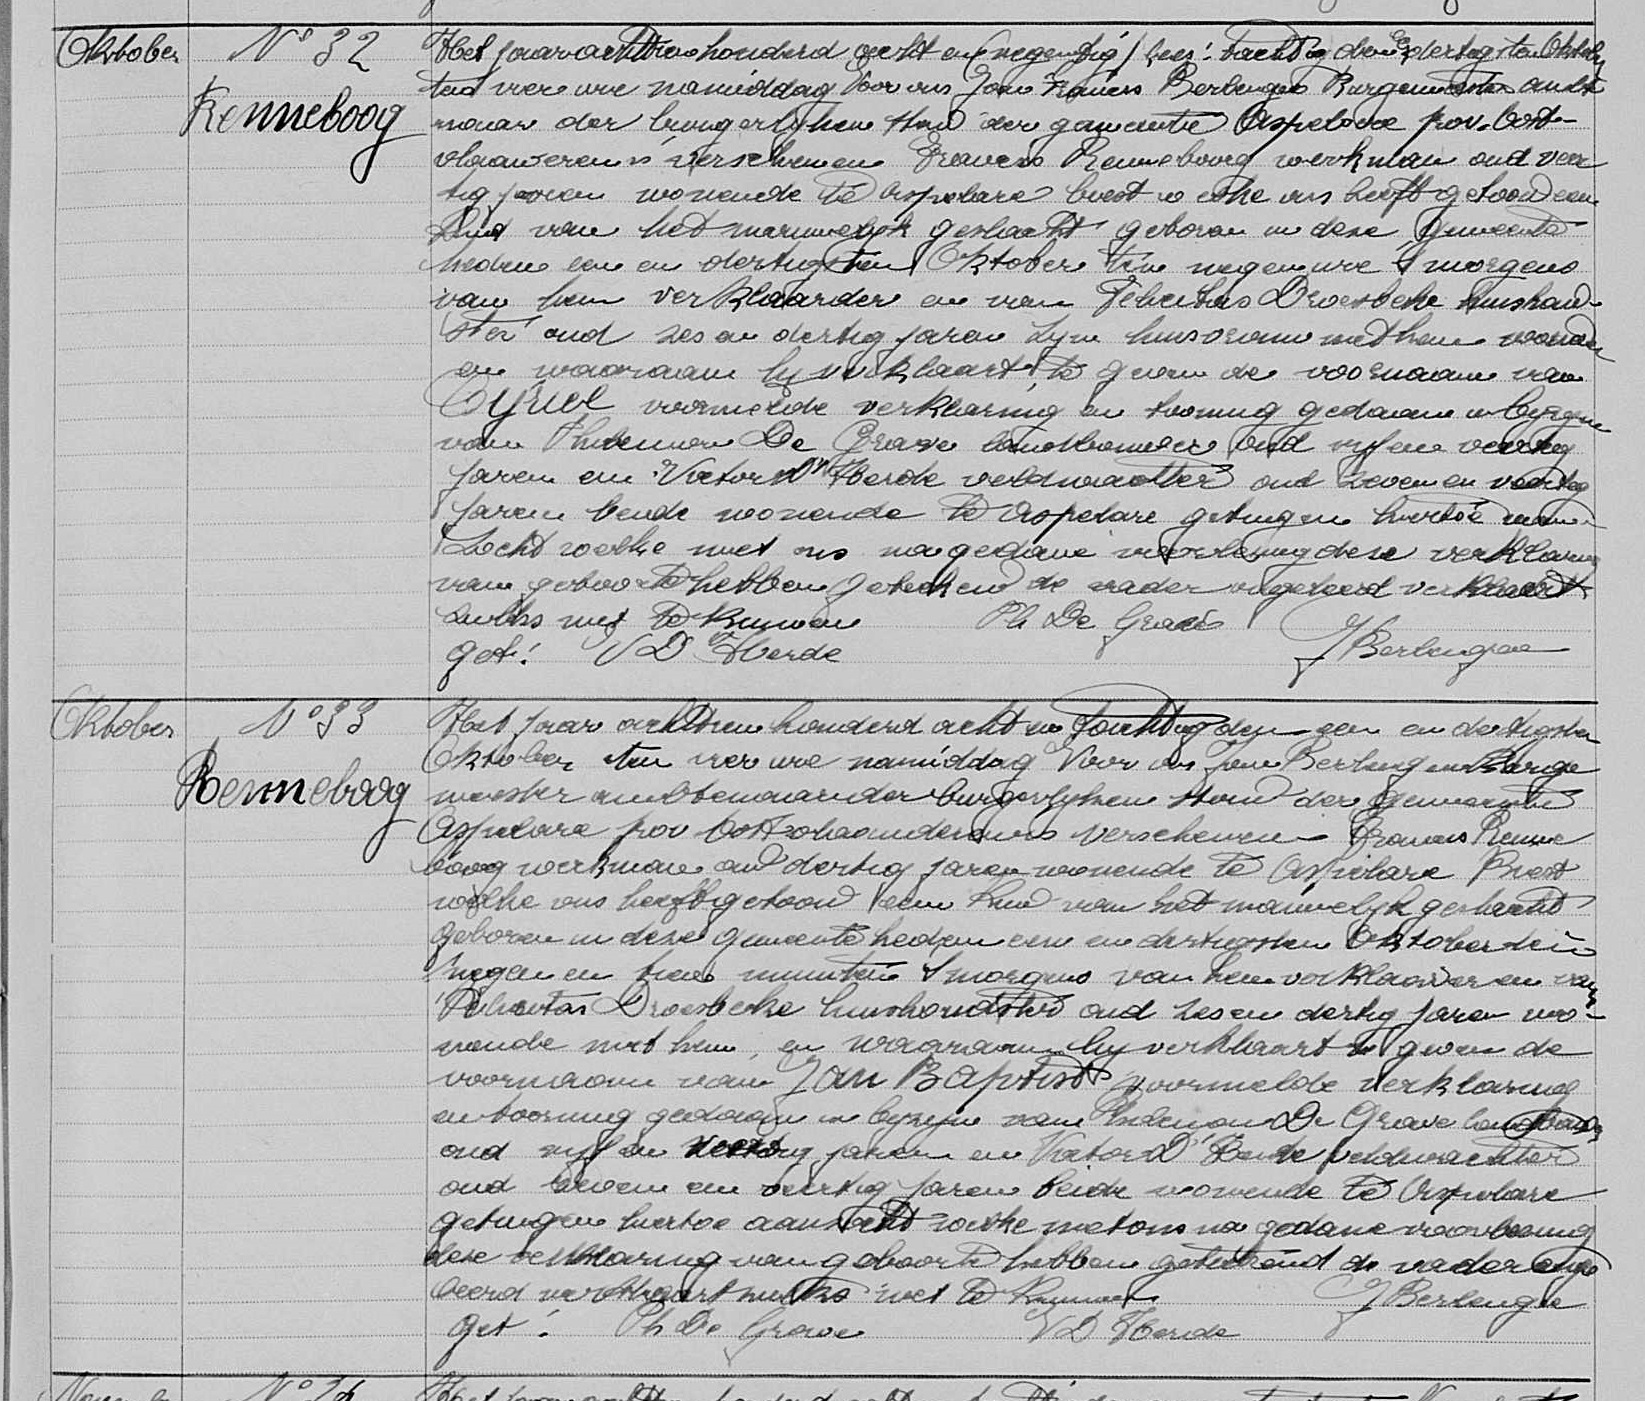 Oktober
N° 32
Renneboog
Het jaar achttien honderd acht en (negentig) lees: tachtig den een dertigsten Oktober
ten vier ure namiddag Voor ons Jan Francis Berlengee Burgemeester ambte
naar der burgerlyken stand der gemeente Aspelare prov. Oost-
vlaanderen is verschenen Francis Renneboog werkman oud veer
tig jaren wonende te Aspelare Biest welke ons heeft getoond een
Kind van het mannelyk geslacht geboren in deze Gemeente
heden een en dertigsten Oktober ten negen ure 's morgens
van hem verklaarder en van Felicitas Droesbeke huishoud-
ster oud zes en dertig jaren zyn huisvrouw met hem wonende
en waaraan hy verklaart te geven de voornaam van
Cyriel voormelde verklaring en tooning gedaan in byzyn
van Philemon De Grave landbouwer oud vyf en veertig
jaren en Victor D'Herde veldwachter oud zeven en veertig
jaren beide wonende te Aspelare getuigen hiertoe aan-
zocht welke met ons na gedane voorlezing deze verklaring
van geboorte hebben geteekend de vader ongeleerd verklaart
zulks niet te kunnen Ph De Grave J Berlengee
Get! V D'Herde
Oktober
N° 33
Renneboog
Het jaar achttien honderd acht en tachtig den een en dertigsten
Oktober ten vier ure namiddag Voor ons Jan Berlengee Burge
meester ambtenaar der burgerlyken stand der gemeente
Aspelare prov Oost vlaanderen is verschenen Francis Renne
boog werkman oud dertig jaren wonende te Aspelare Biest
welke ons heeft getoond een kind van het mannelyk geslacht
geboren in deze gemeente heden een en dertigsten Oktober ten
negen en tien minuten 's morgens van hem verklaarder en van
Felicitas Droesbeke huishoudster oud zes en dertig jaren wo-
nende met hem, en waaraan hy verklaart te geven de
voornaam van Jan Baptist voormelde verklaring
en tooning gedaan in byzyn van Philemon De Grave landbouwer
oud vyf en veertig jaren en Victor D'Herde veldwachter
oud zeven en veertig jaren beide wonende te Aspelare
getuigen hiertoe aanzocht welke met ons na gedane voorlezing
deze verklaring van geboorte hebben geteekend de vader onge
leerd verklaart zulks niet te kunnen J Berlengee
Get! Ph De Grave V D'Herde